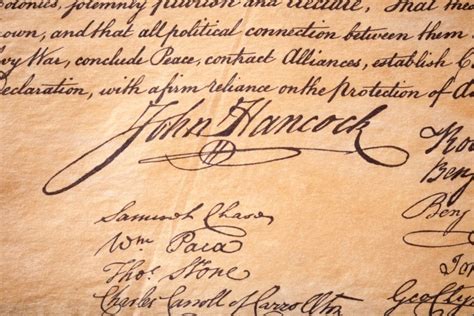 Colonies, solemnly publish and declare, That the
own, and that all political connection between them
vy War, conclude Peace, contract Alliances, establish C
Declaration, with a firm reliance on the protection of
John Hancock
Samuel Chase
Wm Paca
Thos. Stone
Charles Carroll of Carrollton
Benj
Benj
Geo Cly